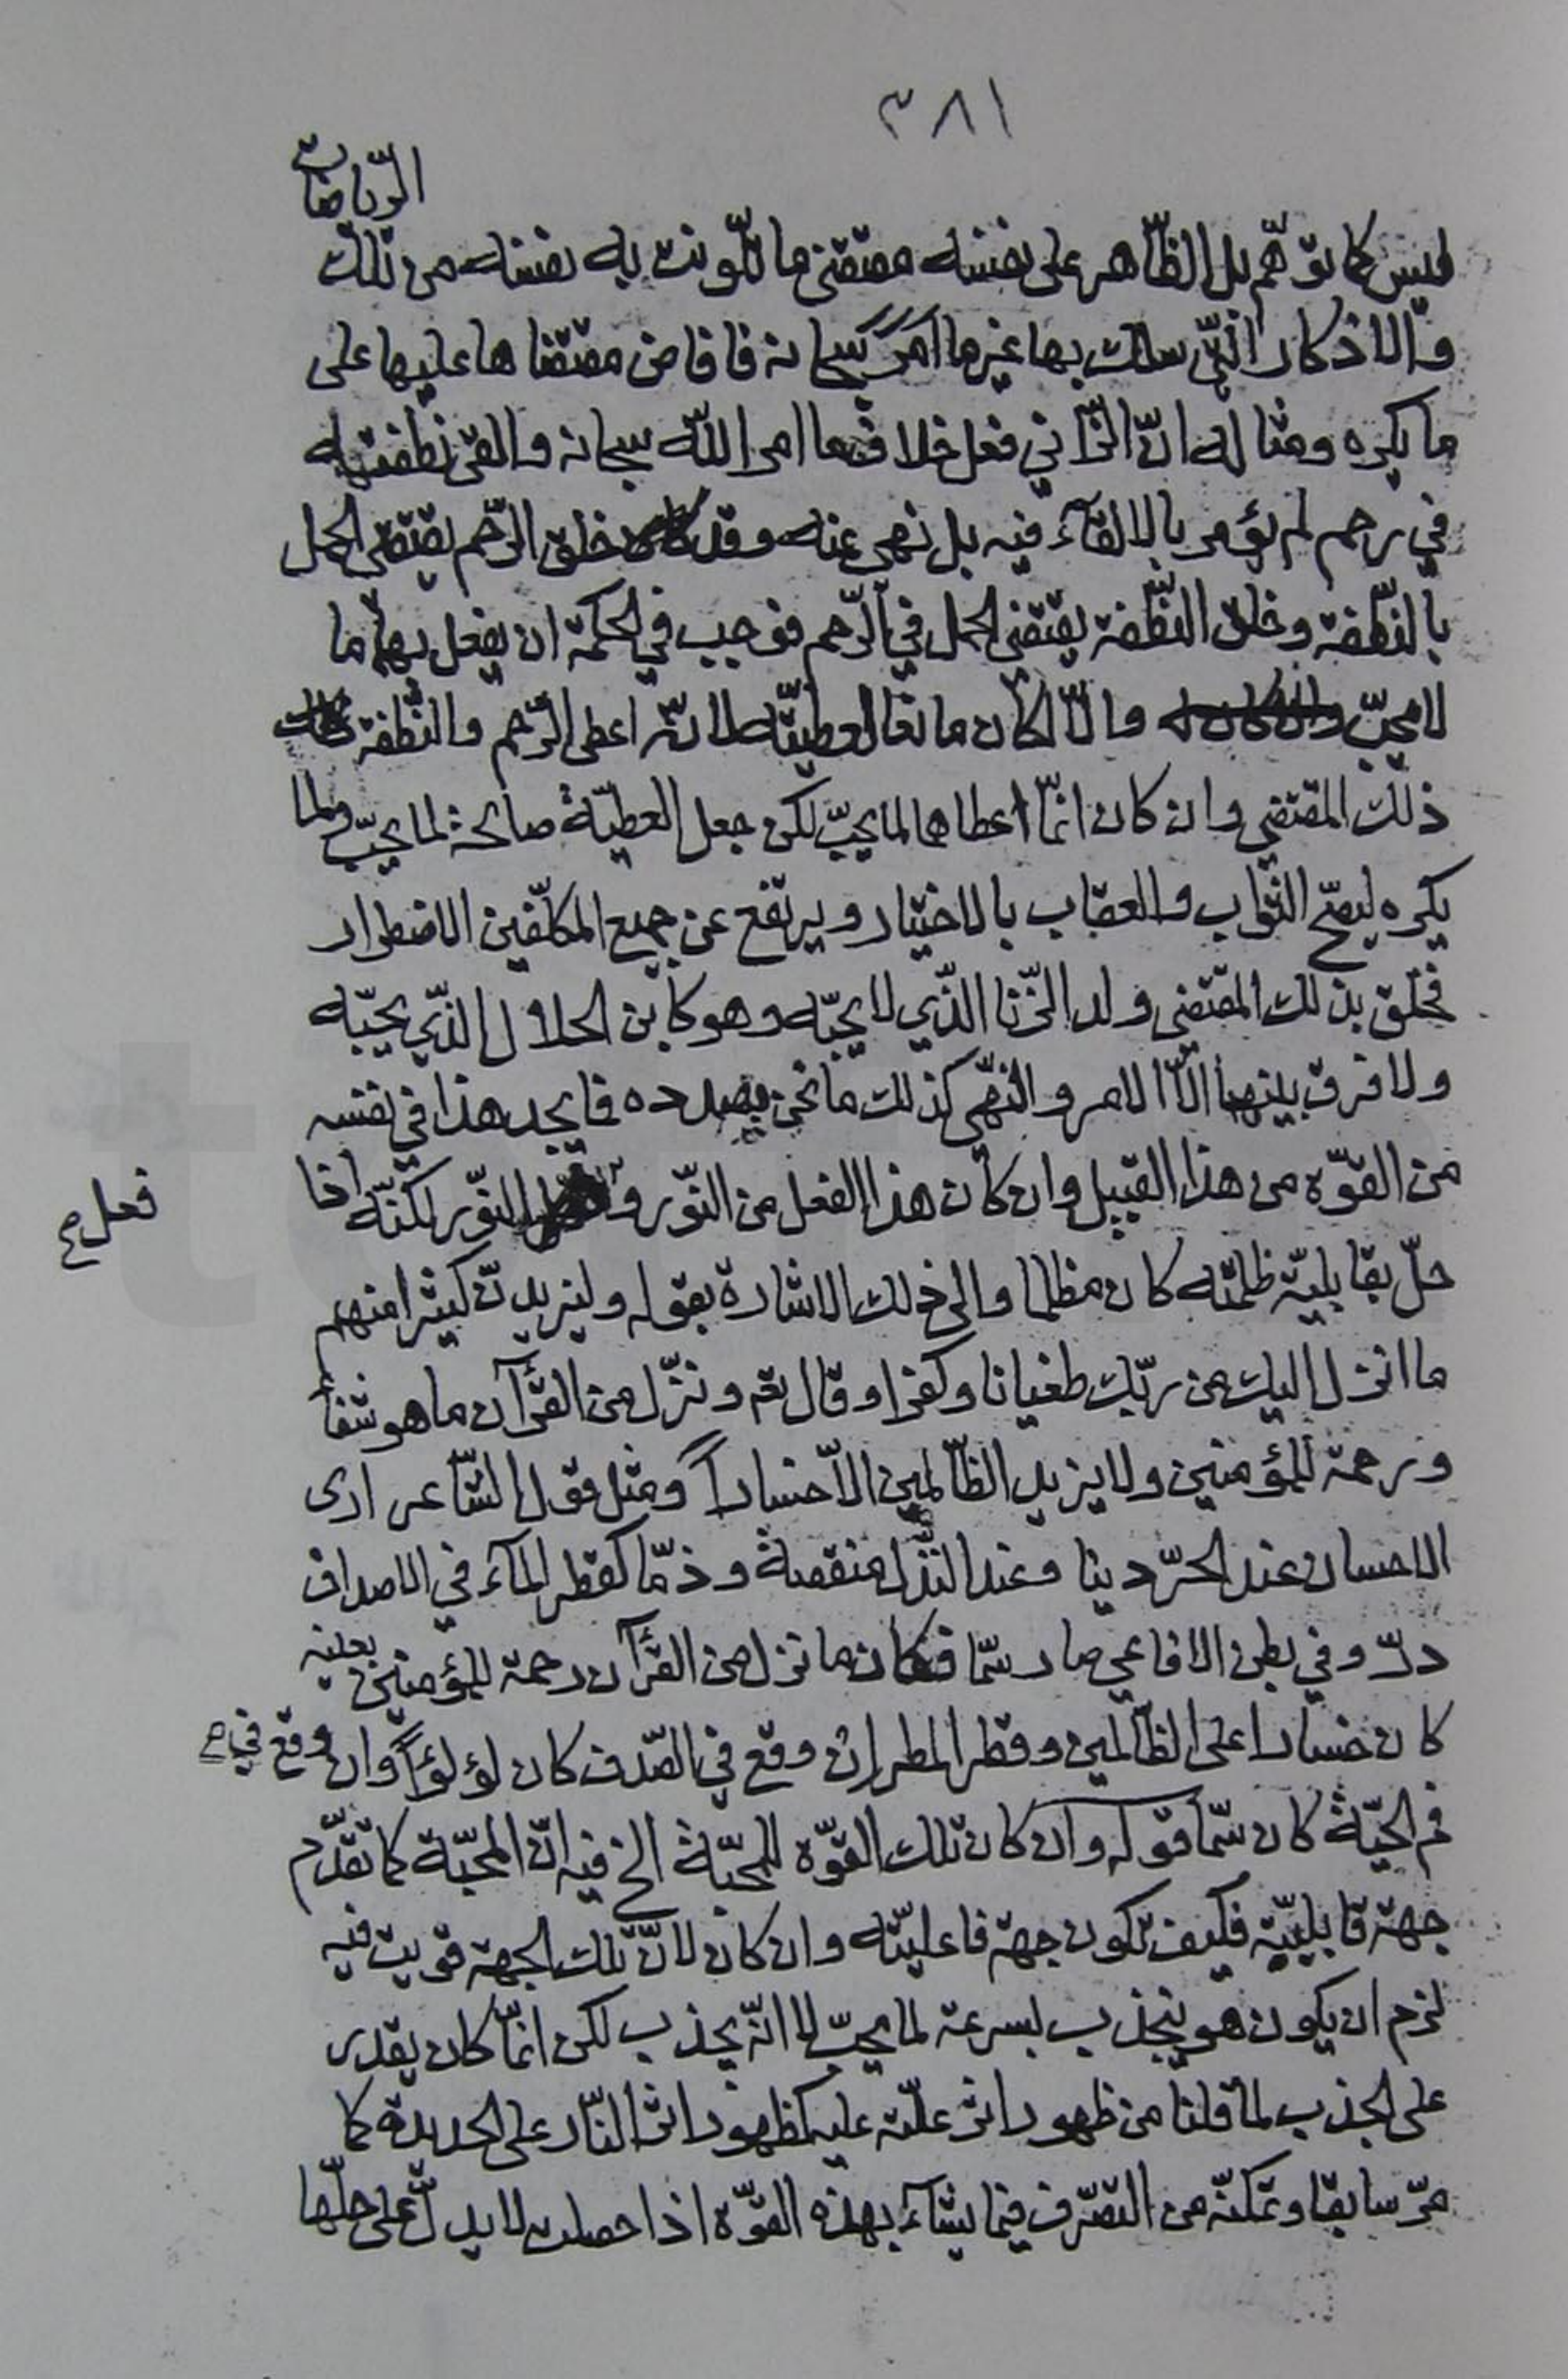 ٣٨١
الرّياضات
ليس كما توهّم بل الظّاهر على نفسه مقتضى ما تلّونت به نفسه من تلك
والاذكار الّتي سلك بها غير ما امر سبحانه فافاض مقتضاها عليها على
ما يكره ومثاله انّ الزّاني فعل خلاف ما امر اللّه سبحانه والقى نطفته
في رحم لم يؤمر بالالقآء فيه بل نهى عنه وقد خلق الرّحم يقتضي الحمل
بالنّطفة وخلق النّطفة يقتضي الحمل في الرّحم فوجب في الحكمة ان يفعل بهما ما
لا يحبّ والّا لكان مانعا لعطيّته لانّه اعطى الرّحم والنّطفة
ذلك المقتضي وان كان انّما اعطاها لما يحبّ لكن جعل العطيّة صالحة لما يحبّ ولما
يكره ليصحّ الثّواب والعقاب بالاختيار ويرتفع عن جميع المكلّفين الاضطرار
فخلق بذلك المقتضي ولد الزّنا الّذي لا يحبّه وهو كابن الحلال الّذي يحبّه
ولا فرق بينهما الّا الامر والنّهي كذلك ما نحن بصدده فما يجد هذا في نفسه
من القوّه من هذا القبيل وان كان هذا الفعل من النّور و النّور لكنّه اذا
فعل ح
حلّ بقابليّة ظلمته كان مظلما والى ذلك الاشارة بقوله وليزيدنّ كثيرا منهم
ما انزل اليك من ربّك طغيانا وكفرا وقال تعم وننزّل من القرآن ما هو شفآء
ورحمة للمؤمنين ولا يزيد الظّالمين الاّ خساراً ومثل قول الشّاعر ارى
الاحسان عند الحرّ دينا وعند النّذل منقصة وذمّا كقطر المآء في الاصداف
درّ وفي بطن الافاعي صار سمّا فكان ما نزل من القرآن رحمة للمؤمنين بعينه
كان خسارا على الظّالمين وقطر المطر ان وقع في الصّدف كان لؤلؤاً وان وقع في ح
فم الحيّة كان سمّا قوله وان كان تلك القوّه للمحبّة الخ فيه انّ المحبّة كما تقدّم
جهة قابليّة فكيف تكون جهة فاعليّته وان كان لانّ تلك الجهة قويت فيه
لزم ان يكون هو ينجذب بسرعة لما يحبّ لا انّه يجذب لكن انّما كان يقدر
على الجذب لما قلنا من ظهور اثر علّته عليه كظهور اثر النّار على الحديدة كما
مرّ سابقا وتمكنّه من التصّرف فيما يشآء بهذه القوّه اذا حصلت لا يدلّ على حلّها